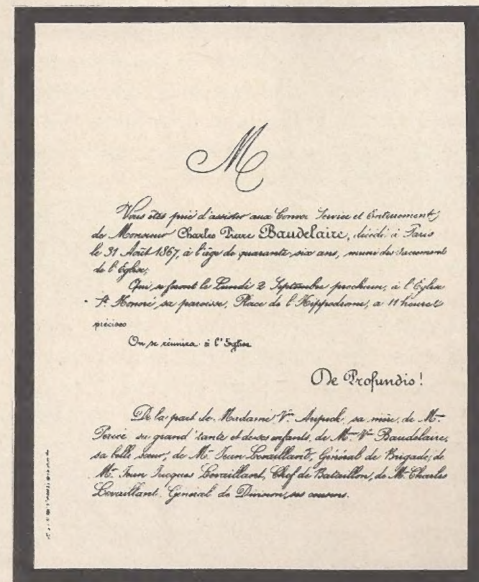 M
Vous êtes prié d'assister aux Convoi Service et Enterrement,
de Monsieur Charles Pierre Baudelaire, décédé à Paris
le 31 Août 1867, à l'âge de quarante-six ans, muni des Sacrements
de l'Eglise,
Qui se feront le Lundi 2 Septembre prochain, à l'Eglise
St Honoré, sa paroisse, Place de l'Hippodrome, à 11 heures
précises
On se réunira à l'Eglise
De Profundis !
De la part de Madame Vve Aupick, sa mère, de Mme
sa grand'tante et de ses enfants, de Mme Vve Baudelaire,
sa belle sœur, de Mr Jean Levaillant, Général de Brigade, de
Mr Jean Jacques Levaillant, Chef de Bataillon, de Mr Charles
Levaillant, Général de Division, ses cousins.